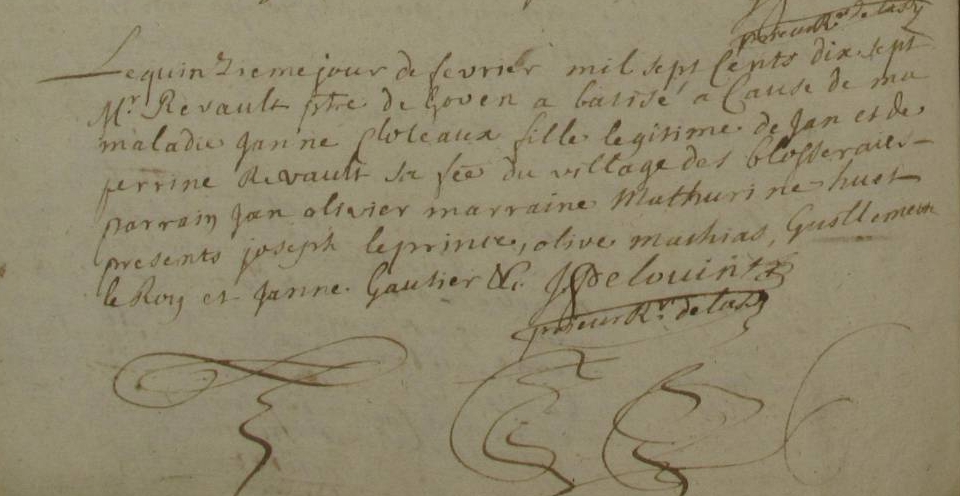 prieur Rr de Lassy
Lequinzieme jour de fevrier mil sept Cents dix sept
Mr Revault ptre de Goven a batisé a Cause de ma
maladie Janne Ploteaux fille legitime de Jan et de
perrine Revault sa fée du village des blosseraies
parrain Jan olivier marraine Mathurine huet
presents joseph leprince, olive mathias, Gusllemette
le Roy et Janne Gautier &c. J Delouint
prieur Rr de Lassy